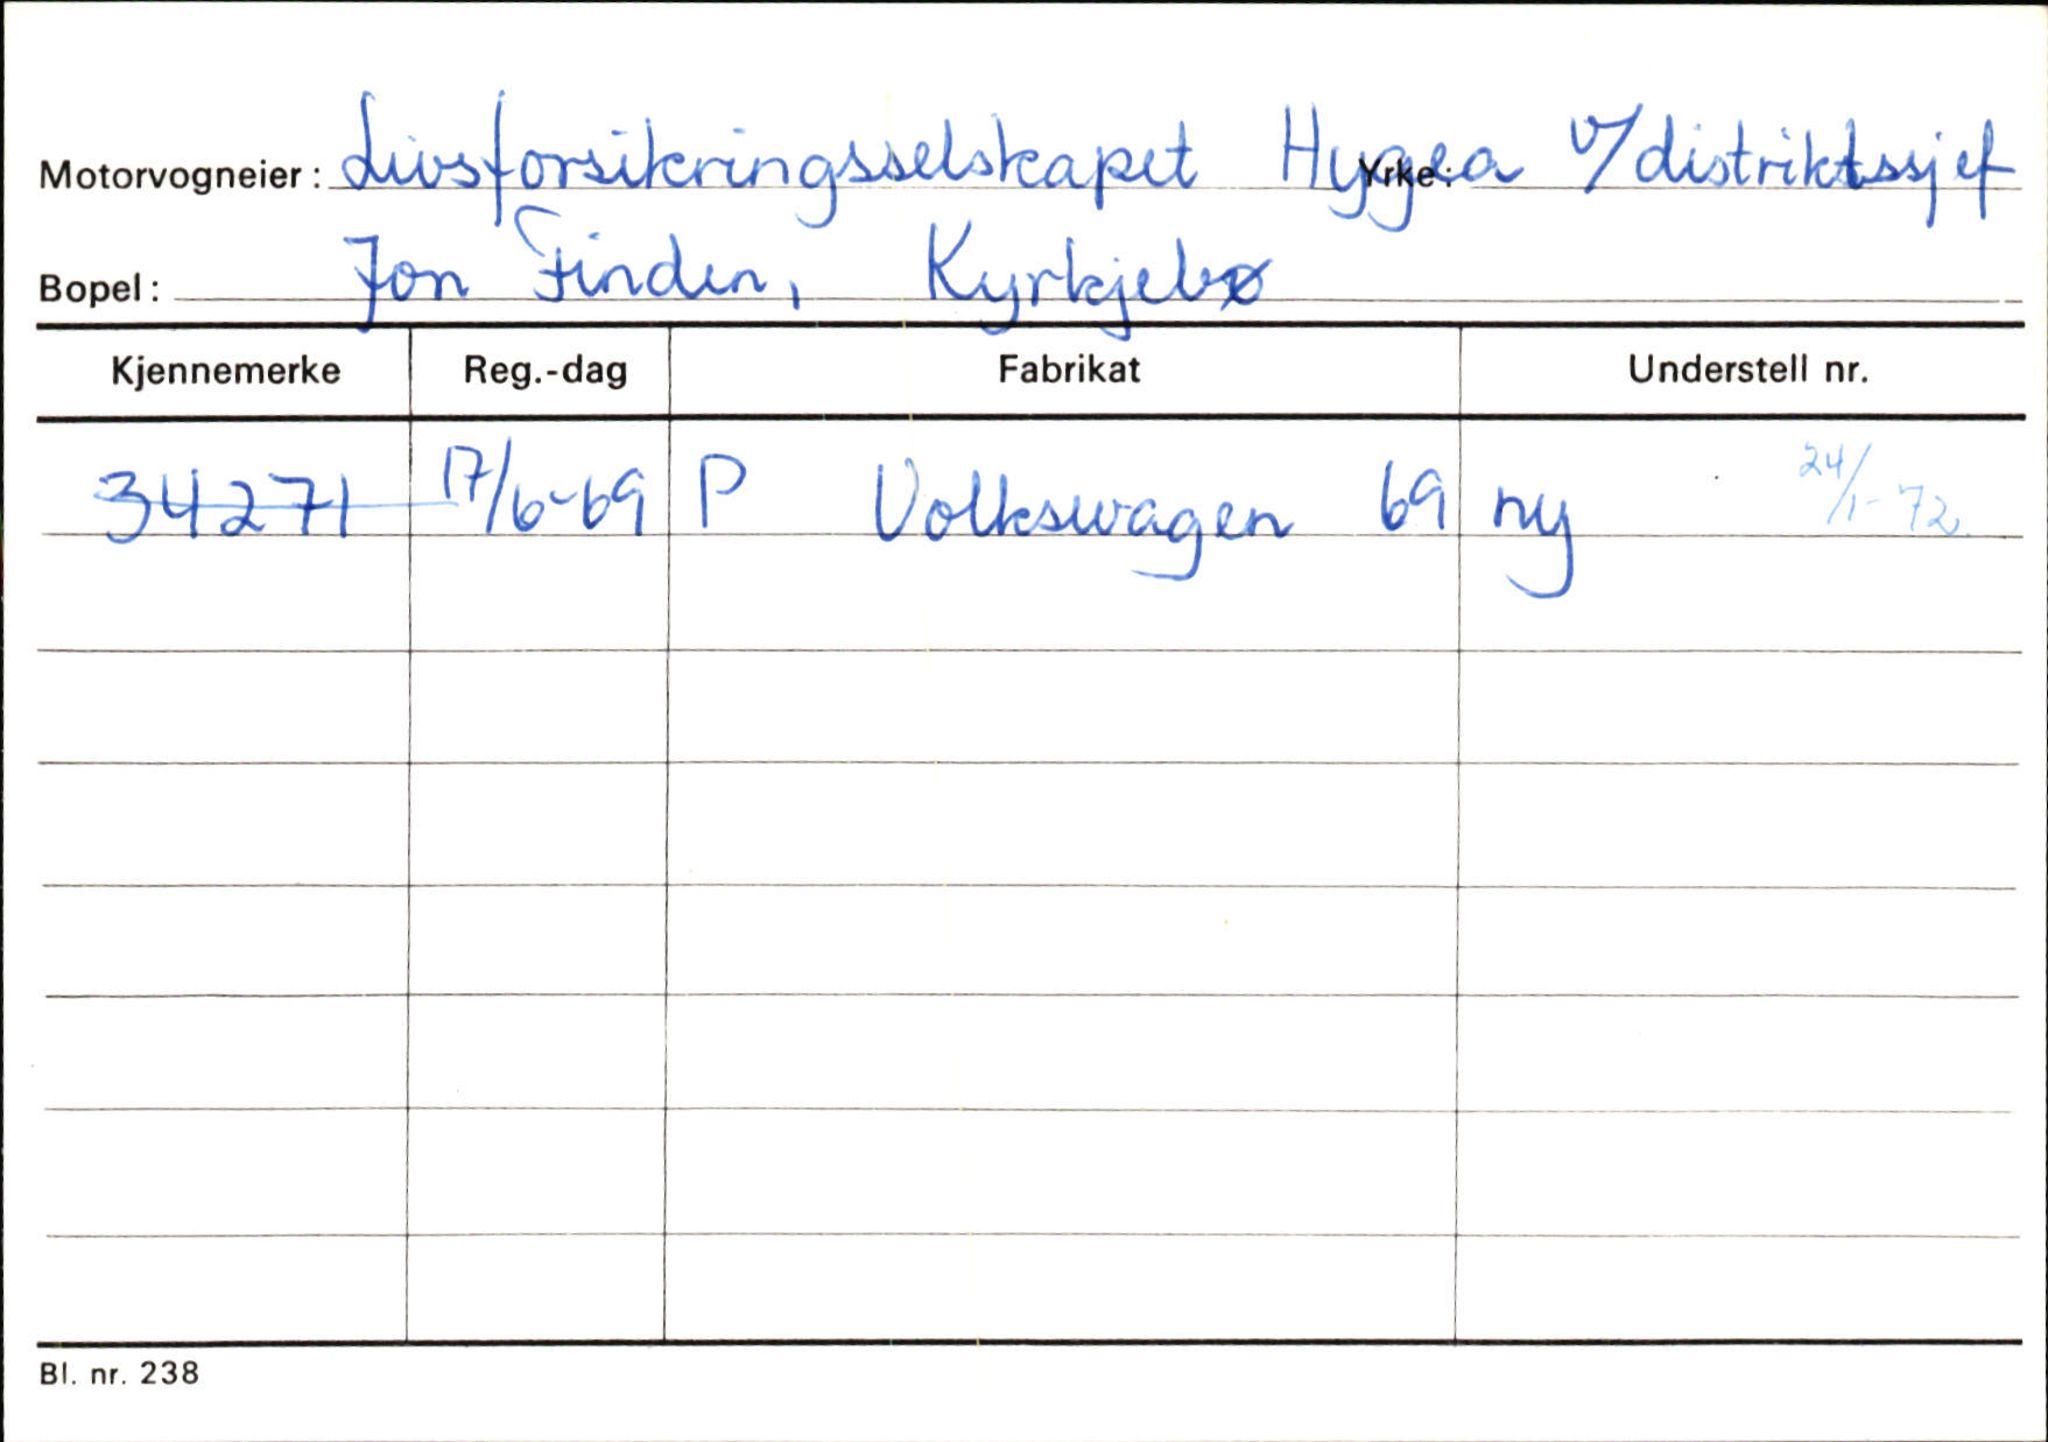 Motorvogneier: Livsforsikringsselskapet Hygea Yrke: v/distriktssjef
Bopel: Jon Finden, Kyrkjebø
Kjennemerke Reg.-dag Fabrikat Understell nr.
34271 17/6-69 P Volkswagen 69 ny 24/1-72.
Bl. nr. 238